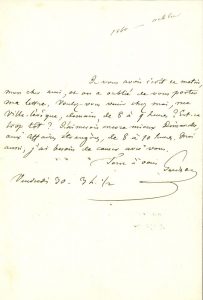 Je vous avais écrit ce matin,
mon cher ami, et on a oublié de vous porter
ma lettre. Voulez-vous venir chez moi, rue
Ville-l'évêque, demain, de 8 à 9 heures ? Est-ce
trop tôt ? J'aimerais encore mieux Dimanche,
aux affaires étrangères, de 8 à 9 heures. Moi
aussi, j'ai besoin de causer avec vous.
Tout à vous
Vendredi 30. 9 h. 1/2